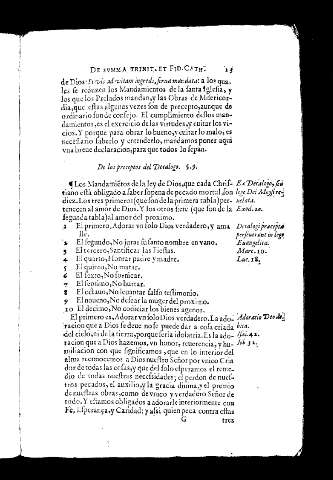 DE SVMMA TRINIT. ET FID. CATH. 25
de Dios: Si vis ad vitam ingredi, serva mandata: a los qua-
les se reducen los Mandamientos de la santa Iglesia, y
los que los Prelados mandan, y las Obras de Misericor-
dia, que estas algunas vezes son de precepto, aunque de
ordinario son de consejo. El cumplimiento destos man-
damientos, es el exercicio de las virtudes, y euitar los vi-
cios. Y porque para obrar lo bueno, y euitar lo malo, es
necessario saberlo y entenderlo, mandamos poner aqui
vna breue declaracion, para que todos lo sepan.
De los preceptos del Decalogo. §.9.
¶ Los Mandamiẽtos de la ley de Dios, que cada Chris-
tiano està obligado a saber sopena de pecado mortal, son
diez. Los tres primeros (que son de la primera tabla) per-
tenecen al amor de Dios. Y los otros siete (que son de la
segunda tabla) al amor del proximo.
Ex Decalogo, siue
lege Dei Moysi re-
uelata.
Exod. 20.
1 El primero, Adorar vn solo Dios verdadero, y ama
lle.
2 El segundo, No jurar su santo nombre en vano.
3 El tercero, Santificar las fiestas.
4 El quarto, Honrar padre y madre.
5 El quinto, No matar.
6 El sexto, No fornicar.
7 El septimo, No hurtar.
8 El octauo, No leuantar falso testimonio.
9 El noueno, No dessear la muger del proximo.
10 El decimo, No codiciar los bienes agenos.
Decalogi præcepta
perseuerant in lege
Euangelica.
Marc. 10.
Luc. 18.
El primero es, Adorar vn solo Dios verdadero. La ado-
racion que a Dios se deue no se puede dar a cosa criada
del cielo, ni de la tierra, porque seria idolatria. Es la ado-
racion que a Dios hazemos, vn honor, reuerencia, y hu-
millacion con que significamos, que en lo interior del
alma reconocemos a Dios nuestro Señor por vnico Cria
dor de todas las cosas, y que del solo esperamos el reme-
dio de todas nuestras necessidades; el perdon de nues-
tros pecados, el auxilio, y la gracia diuina, y el premio
de nuestras obras, como de vnico y verdadero Señor de
todo. Y estamos obligados a adorarle interiormente con
Fe, Esperança, y Caridad; y assi, quien peca contra estas
Adoratio Deo de-
bita.
G tres